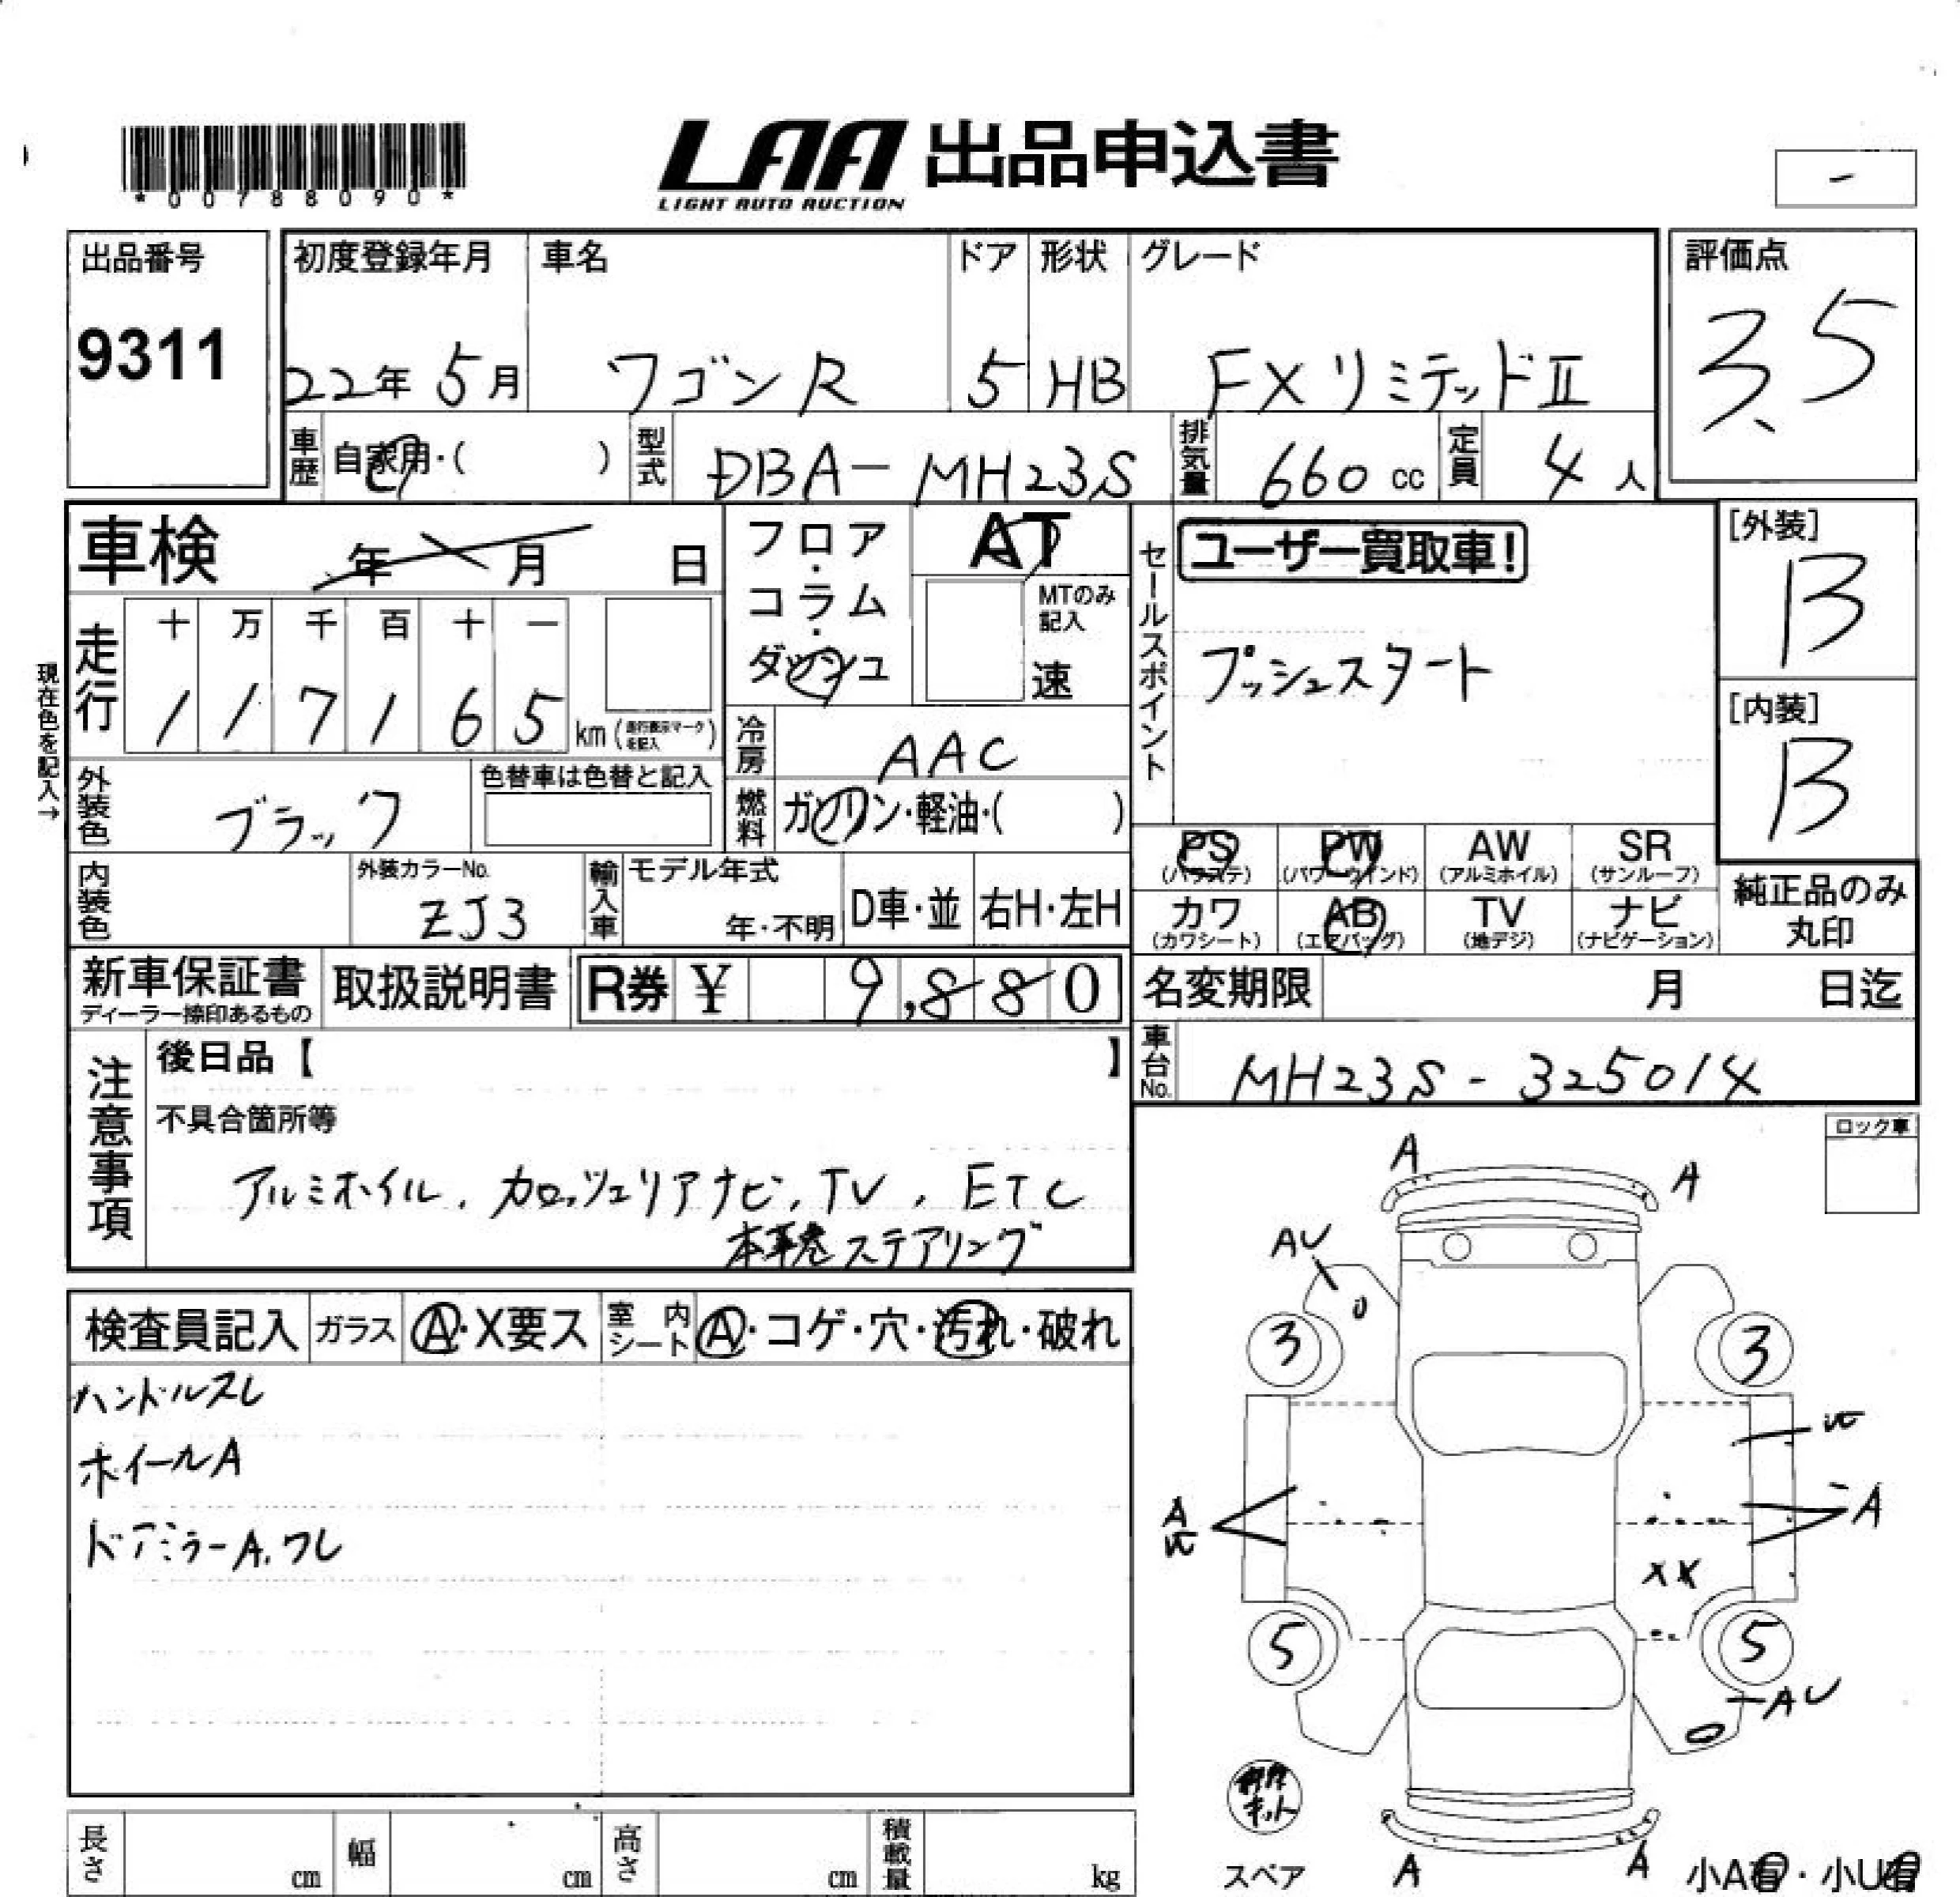 *00788090*
LAA 出品申込書
LIGHT AUTO AUCTION
-
出品番号
9311
初度登録年月 車名 ドア 形状 グレード
22年 5月 ワゴンR 5 HB FXリミテッドⅡ
評価点
3.5
車歴 自家用・( ) 型式 DBA-MH23S 排気量 660 cc 定員 4 人
車検 年 月 日
フロア・コラム・ダッシュ
AT
MTのみ記入
速
セールスポイント
ユーザー買取車!
プッシュスタート
[外装]
B
[内装]
B
現在色を記入→
走行 十 万 千 百 十 一
1 1 7 1 6 5 km (走行表示マークを記入)
冷房 AAC
外装色 ブラック 色替車は色替と記入
燃料 ガソリン・軽油・( )
PS (パワステ) PW (パワーウインド) AW (アルミホイル) SR (サンルーフ)
カワ (カワシート) AB (エアバッグ) TV (地デジ) ナビ (ナビゲーション)
純正品のみ丸印
内装色 外装カラーNo. ZJ3 輸入車 モデル年式 年・不明 D車・並 右H・左H
新車保証書 ディーラー捺印あるもの 取扱説明書 R券 ¥ 9,880
名変期限 月 日迄
車台No. MH23S-325014
注意事項
後日品【 】
不具合箇所等
アルミホイル, カロッツェリアナビ, TV, ETC
本革巻ステアリング
ロック車
検査員記入 ガラス A・X要ス 室内シート A・コゲ・穴・汚れ・破れ
ハンドルスレ
ホイールA
ドアミラーA.ワレ
A
A
AU
3
3
A
A
XX
5
5
AU
A
A
キット
スペア
小A有・小U有
長さ cm 幅 cm 高さ cm 積載量 kg